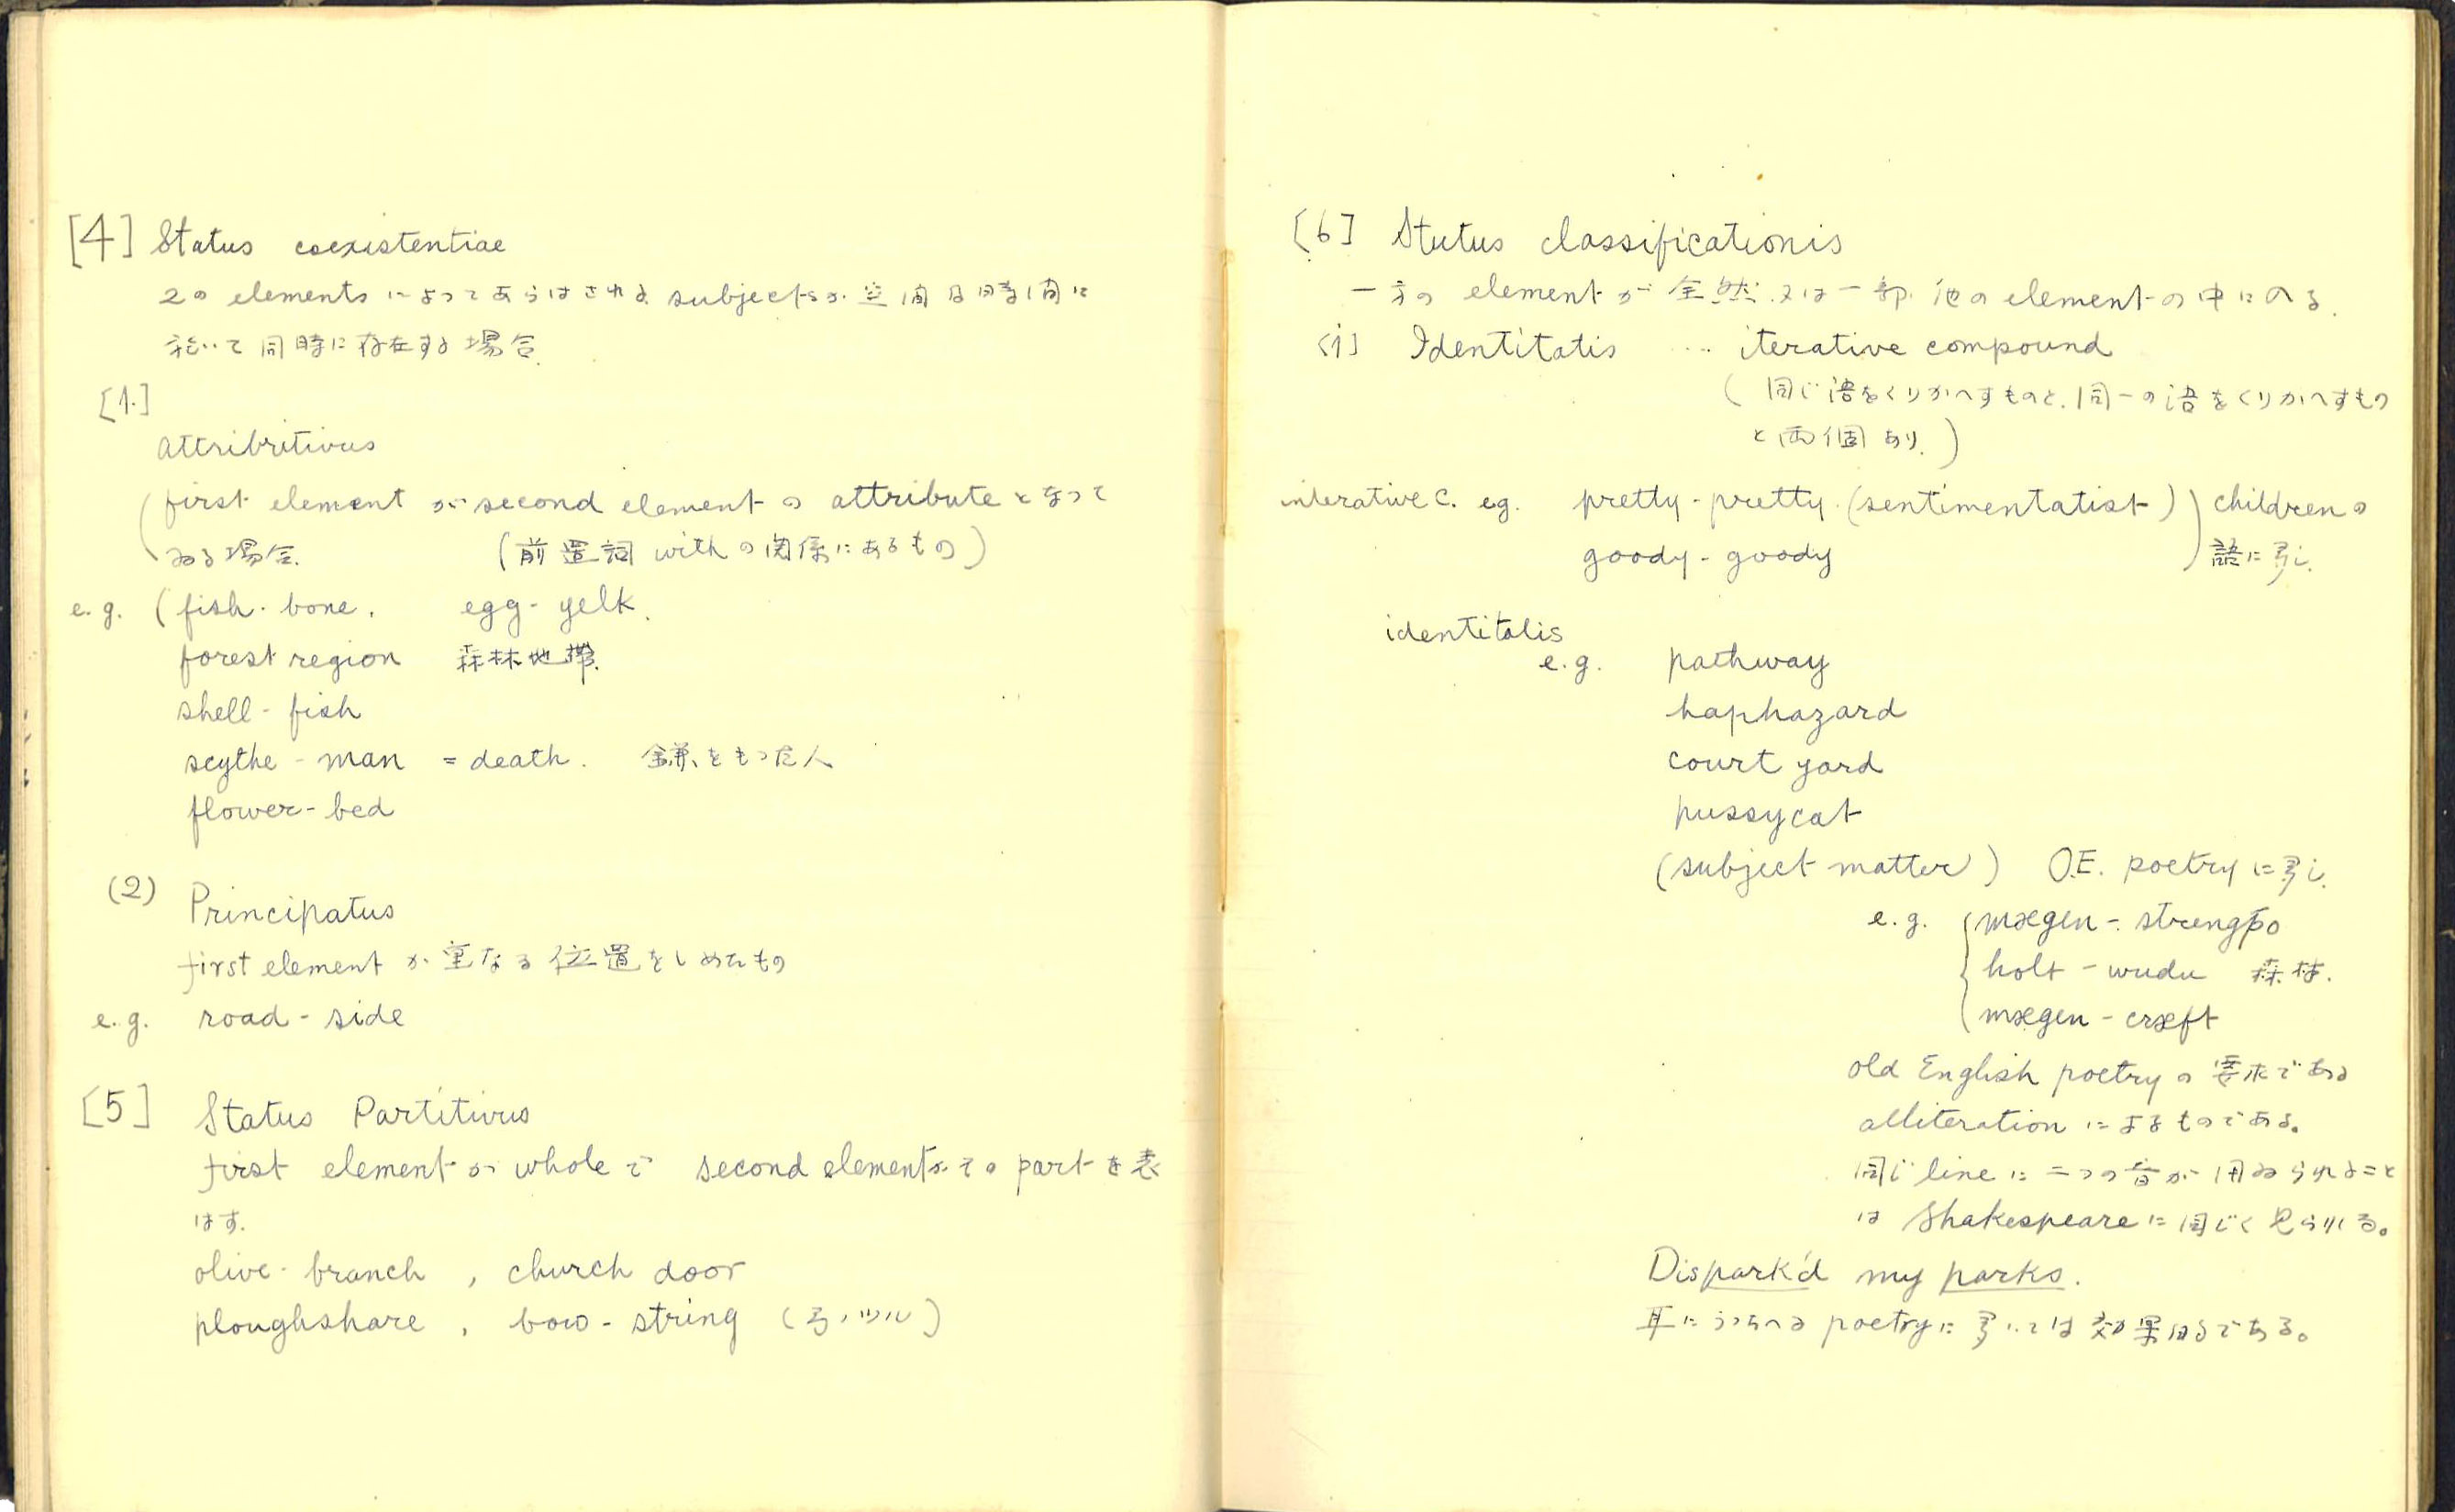 [4] Status coexistentiae
2の elements によってあらはされる subjectsが 空間及時間に
於いて同時に存在する場合.
[1.]
attributivus
(first element が second element の attribute となって
ゐる場合. (前置詞 with の関係にあるもの)
e.g. (fish-bone, egg-yelk.
forest region 森林地帯.
shell-fish
scythe-man = death. 鎌をもった人
flower-bed
(2) Principatus
first element が 重なる位置をしめたもの
e.g. road-side
[5] Status Partitivus
first element が whole で second elementが その part を表
はす.
olive-branch, church door
ploughshare, bow-string (弓ノツル)
[6] Stutus classificationis
一方の element が 全然又は一部 他の element の中に入る.
(i) Identitatis … iterative compound
(同じ語をくりかへすものと、同一の語をくりかへすもの
と両個あり.)
interative c. eg. pretty-pretty (sentimentatist) ) childrenの
goody-goody 語に多い.
identitalis
e.g. pathway
haphazard
court yard
pussycat
(subject matter) O.E. poetry に多い.
e.g. mægen-strengþo
holt-wudu 森林.
mægen-cræft
old English poetry の要求である
alliteration によるものである。
同じ line に 二つの音が 用ゐられること
は Shakespeare に同じく見られる。
Dispark'd my parks.
耳にうったへる poetry に多いては効果的である。